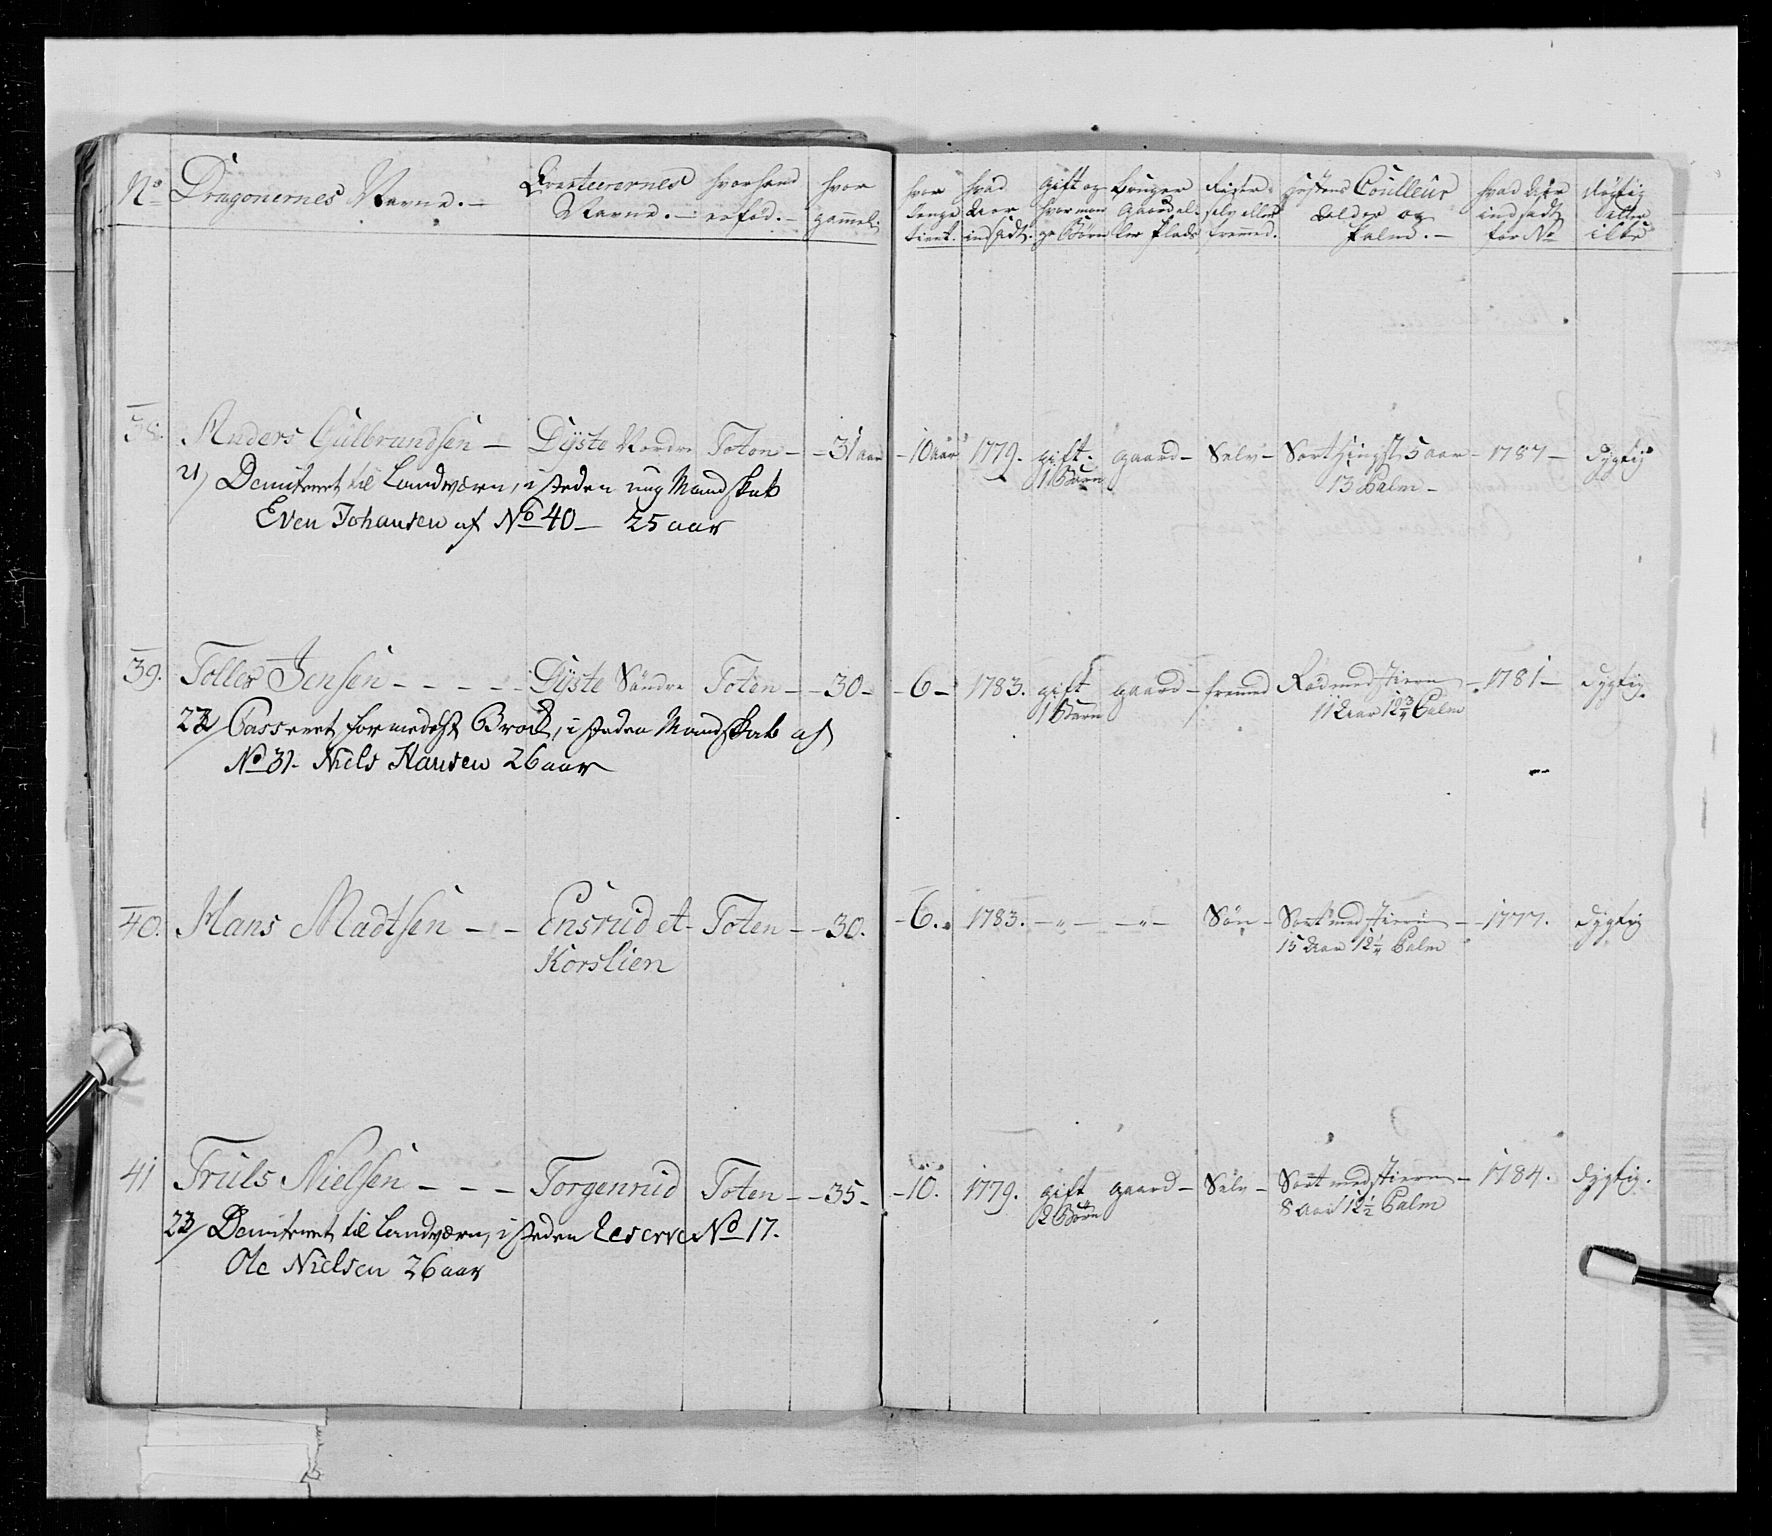 No Dragonernes Navne. — Qvarteerernes Navne. — hvorhand erfød. — hvor gammel. hvor lenge tient. hvad Aar indsadt. Gift og hvor mange Børn Bruger Gaard eller Plads Rister selv eller fremmed. Hestens Coulleur Alder og Palm. — hvad Aar indsadt for No dygtig eller ikke
38. Anders Gulbrandsen — Dyste Nordre Toten — — 31 aar — 10 aar 1779. gift. gaard — Selv — Sort Hingst 5 aar — 1787 — dygtig
1 Barn 13 Palm —
21) Demiteret til Landværn, i steden ung Mandskab
Even Johansen af No 40 — 25 aar
39. Toller Jensen - - - - Dyste Søndre Toten — — 30 — — 6 — 1783. gift gaard — fremmed Rød med stiern — 1781 — dygtig.
1 Barn 11 Aar 12 3/4 Palm
22) Casseret formedelst Brok, i steden Mandskab af
No 31. Niels Hansen 26 aar
40. Hans Madtsen - - - Ensrud et Toten — — 30. — 6. 1783. — „ — — „ — Søn — Sort med stiern — 1777. dygtig
Korslien 15 Aar 12 1/4 Palm
41 Truls Nielsen - - - Torgenrud Toten — — 35 — — 10. 1779. gift gaard — Selv — Sort med stiern — 1784. dygtig.
2 Børn 8 Aar 12 1/2 Palm
23) Demiteret til Landværn, i steden Reserve No 17.
Ole Nielsen 26 aar